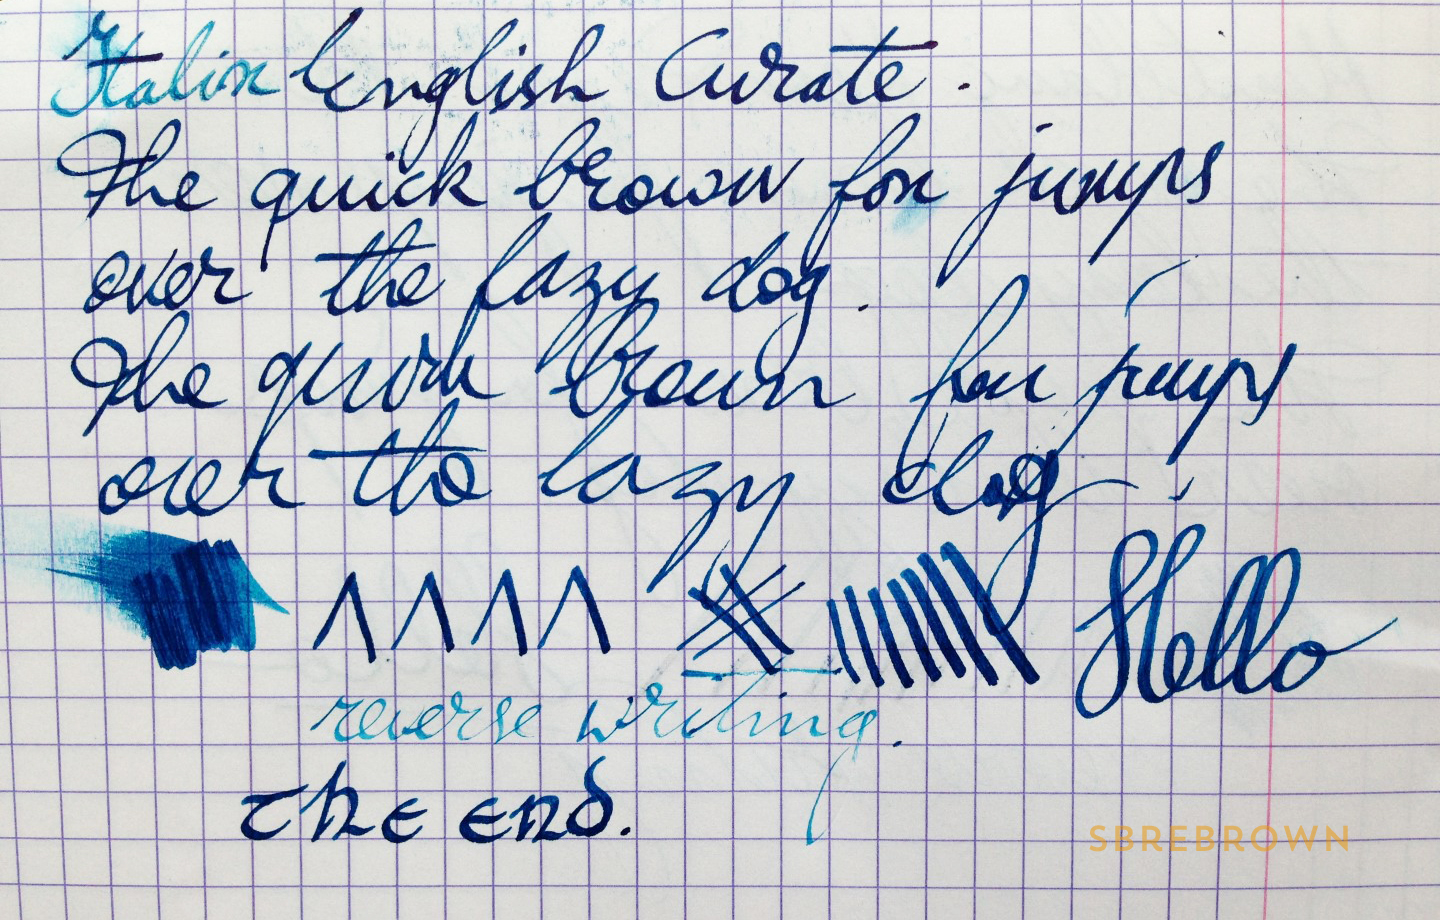 Italix English Curate.
The quick brown fox jumps
over the lazy dog.
The quick brown fox jumps
over the lazy dog.
Hello
reverse writing.
The end.
SBREBROWN